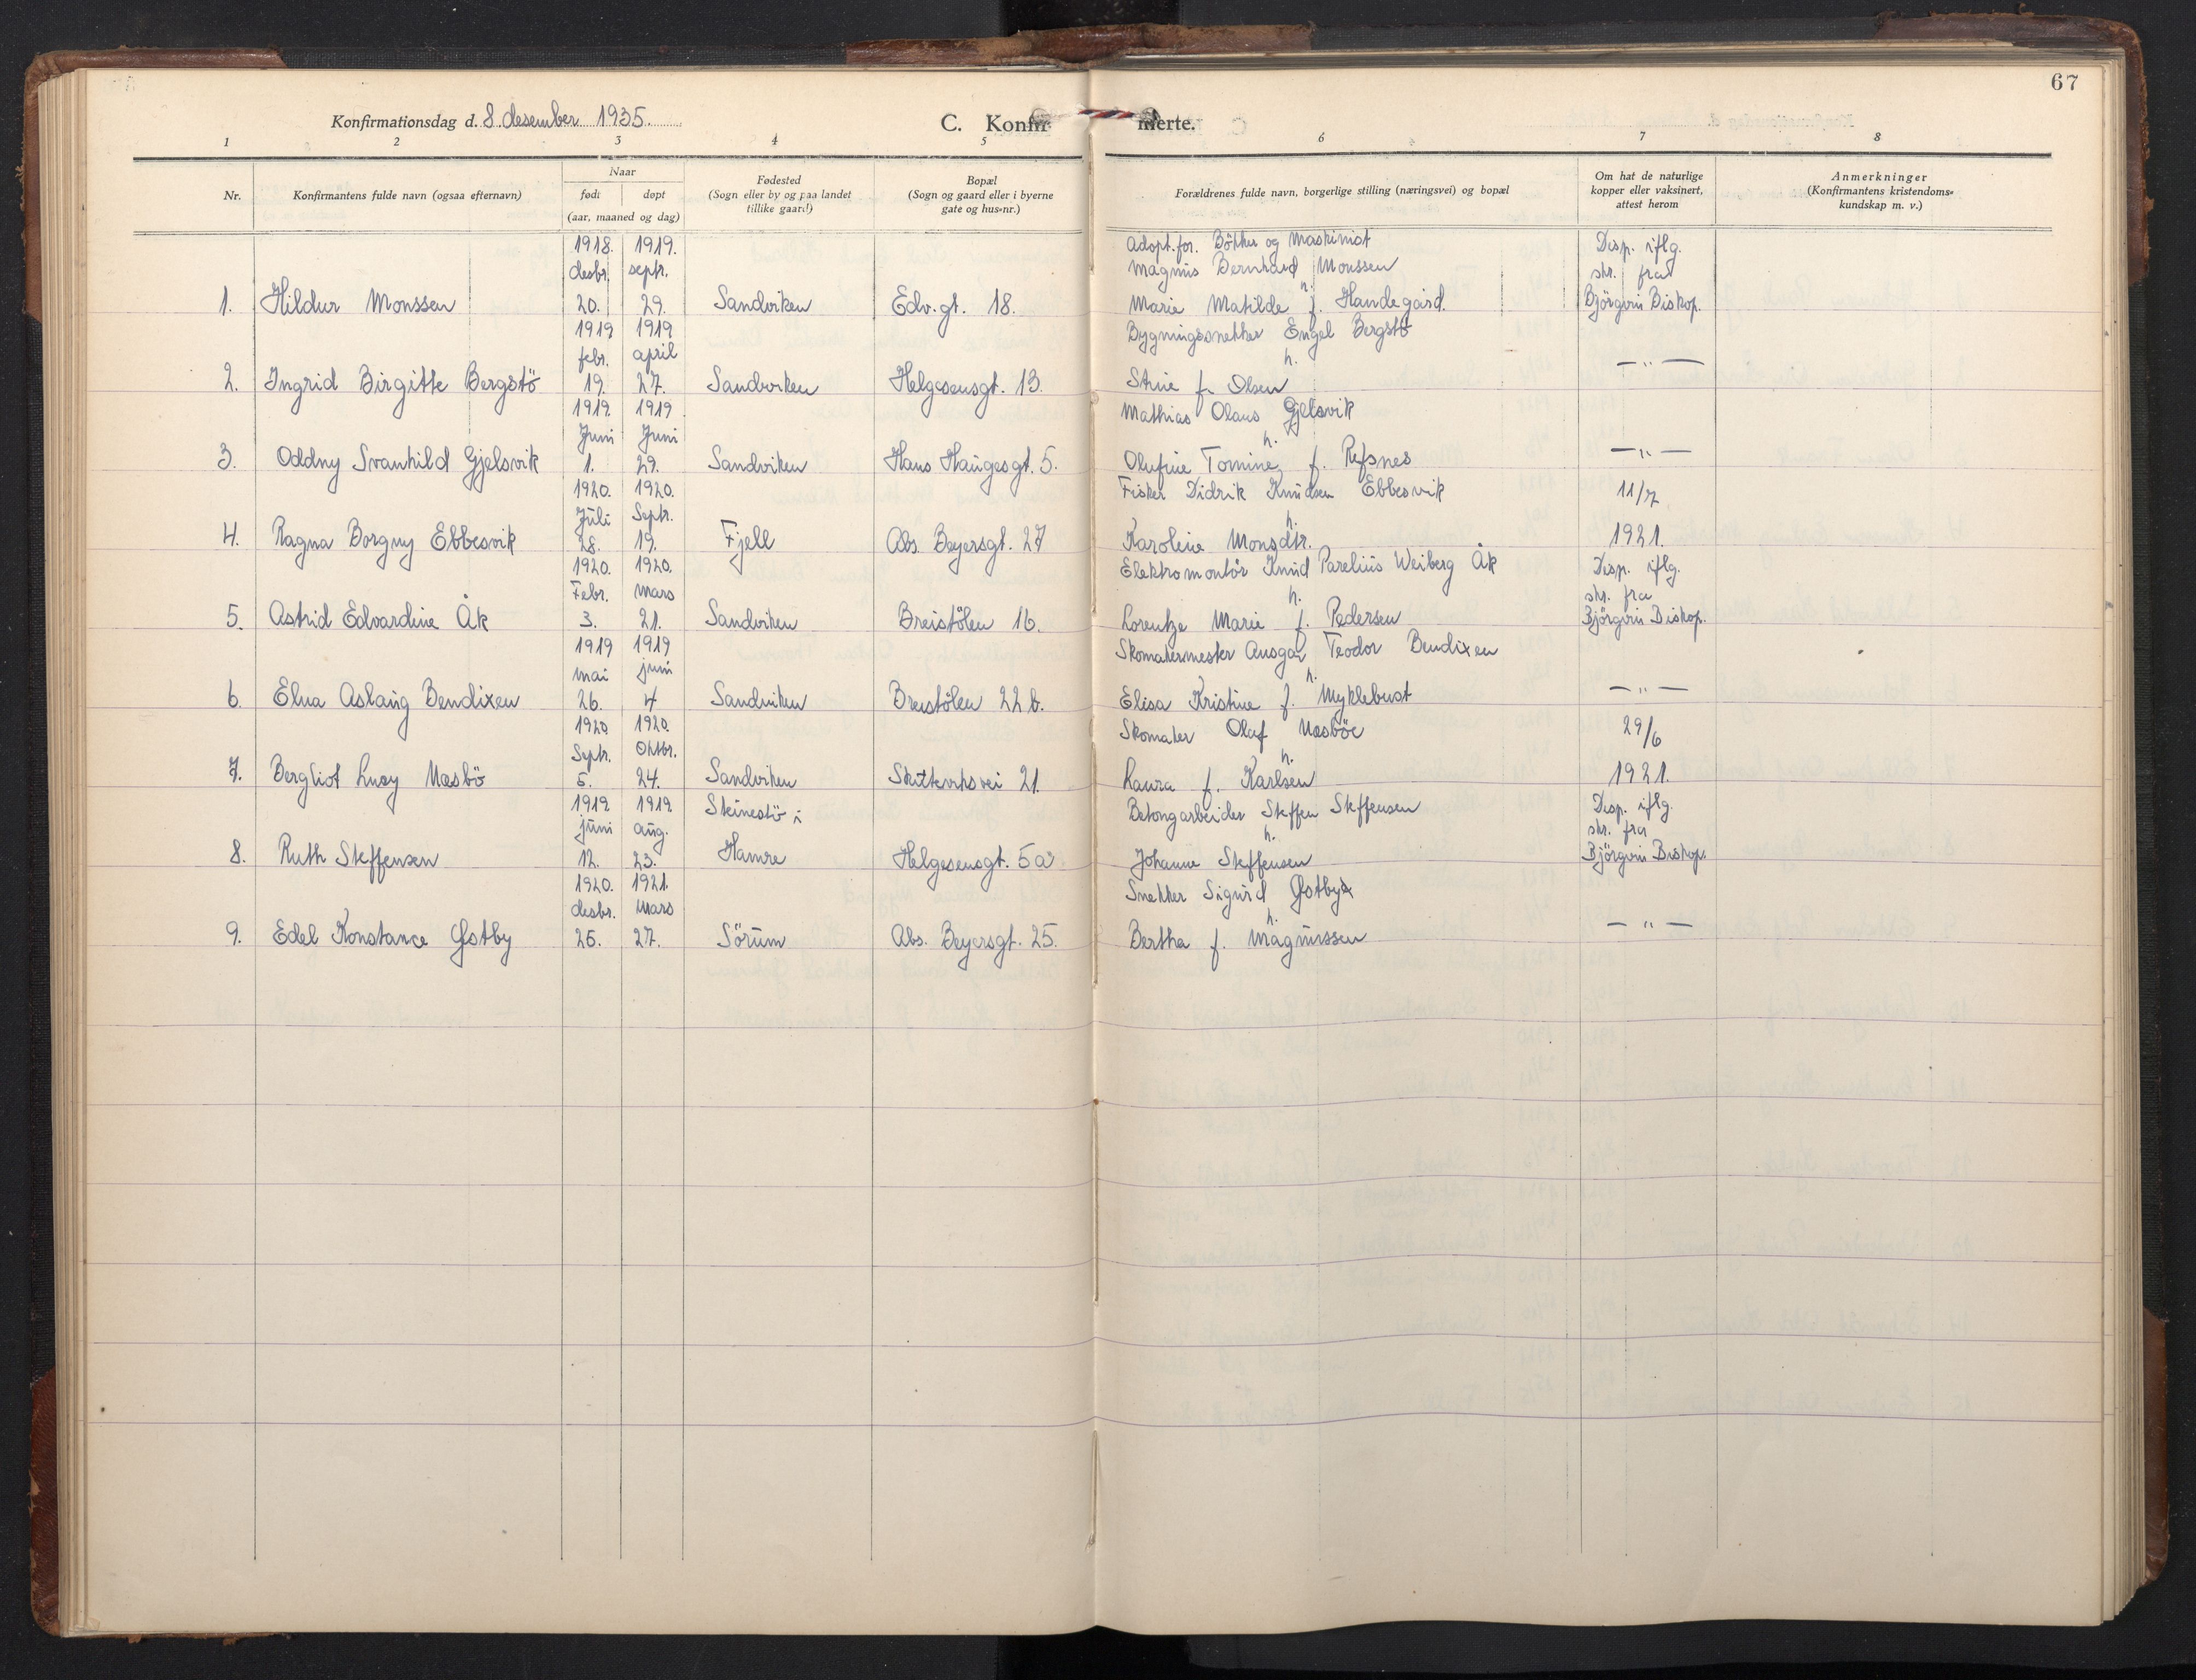 67
Konfirmationsdag d. 8. desember 1935.
C. Konfir-
merte.
1 2 3 4 5 6 7 8
Nr.
Konfirmantens fulde navn (ogsaa efternavn)
Naar
født døpt
(aar, maaned og dag)
Fødested
(Sogn eller by og paa landet
tillike gaard)
Bopæl
(Sogn og gaard eller i byerne
gate og hus-nr.)
Forældrenes fulde navn, borgerlige stilling (næringsvei) og bopæl
Om hat de naturlige
kopper eller vaksinert,
attest herom
Anmerkninger
(Konfirmantens kristendoms-
kundskap m. v.)
1918. 1919. Adopt.for. Bökker og Maskinist Disp. iflg.
desbr. septr. Magnus Bernhard Monssen skr. fra
1. Hildur Monssen 20. 29. Sandviken Edv. gt. 18. h. Marie Matilde f. Handegård. Björgvin Biskop.
1919 1919 Bygningssnekker Engel Bergstö
febr. april h. — " —
2. Ingrid Birgitte Bergstö 19. 27. Sandviken Helgesensgt. 13. Stine f. Olsen
1919 1919 Mathias Olaus Gjelsvik
Juni Juni h.
3. Oddny Svanhild Gjelsvik 1. 29. Sandviken Hans Haugesgt. 5. Olufine Tomine f. Refsnes — " —
1920. 1920. Fisker Didrik Knudsen Ebbesvik 11/7
Juli Septr. h.
4. Ragna Borgny Ebbesvik 28. 19. Fjell Abs. Beyersgt. 27 Karoline Monsdtr. 1921.
1920. 1920. Elektromontör Knud Parelius Weiberg Åk Disp. iflg.
Febr. Mars h. skr. fra
5. Astrid Edvardine Åk 3. 21. Sandviken Breistölen 16. Lorentze Marie f. Pedersen Björgvin Biskop.
1919 1919 Skomakermester Ansgar Teodor Bendixen
mai juni h.
6. Elna Aslaug Bendixen 26. 4 Sandviken Breistölen 22 b. Elisa Kristine f. Myklebust — " —
1920 1920. Skomaker Olaf Næsböe 29/6
Septr. Oktbr. h.
7. Bergliot Lucy Næsbö 5. 24. Sandviken Skuteviksvei 21. Laura f. Karlsen 1921.
1919 1919 Steinestö i Betongarbeider Steffen Steffensen Disp. iflg.
juni aug. h. skr. fra
8. Ruth Steffensen 12. 23. Hamre Helgesensgt. 5 a Johanne Steffensen Björgvin Biskop.
1920. 1921. Snekker Sigurd Østby
desbr. Mars h.
9. Edel Konstance Østby 25. 27. Sörum Abs. Beyersgt. 25. Bertha f. Magnussen — " —